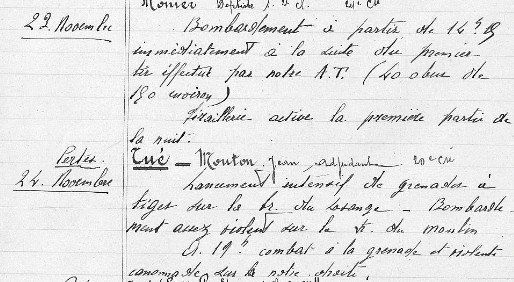 Monier Baptiste s. 2 cl. 20e Cie
23. Novembre Bombardement à partir de 14h
immédiatement à la suite du premier
tir effectué par notre A.T. (40 obus de
150 environ)
Fusillade active la première partie de
la nuit.
Pertes. Tué — Mouton, Jean, adjudant 20e Cie
24. Novembre Lancement intensif de grenades à
tiges sur la tr. du losange — Bombarde-
ment assez violent sur la tr. du moulin
A 19h combat à la grenade et violente
canonnade sur notre droite.